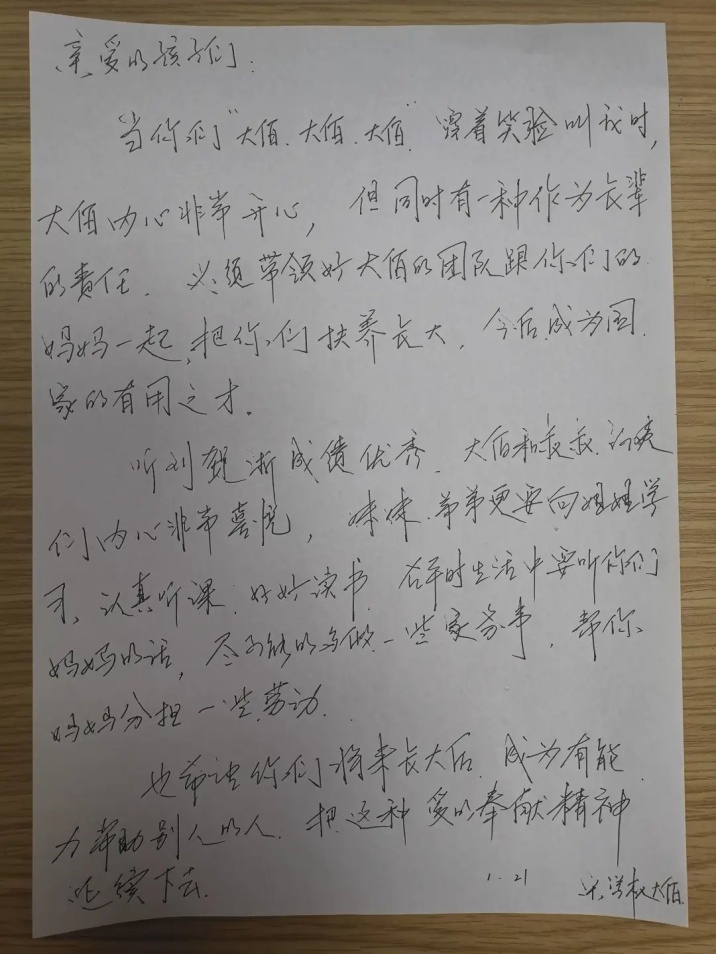 亲爱的孩子们:
当你们"大伯、大伯、大伯"穿着笑脸叫我时,
大伯内心非常开心, 但同时有一种作为长辈
的责任. 必须带领好大伯的团队跟你们的
妈妈一起,把你们扶养长大, 今后成为国
家的有用之才.
听到 浙成绩优秀. 大伯和叔叔
们内心非常喜悦, 妹妹、弟弟更要向姐姐学
习、认真听课、好好读书. 平时生活中要听你们
妈妈的话, 尽可能的多做一些家务事, 帮你
妈妈分担一些劳动.
也希望你们将来长大后、成为有能
力帮助别人的人. 把这种爱的奉献精神
延续下去. 1.21 大伯